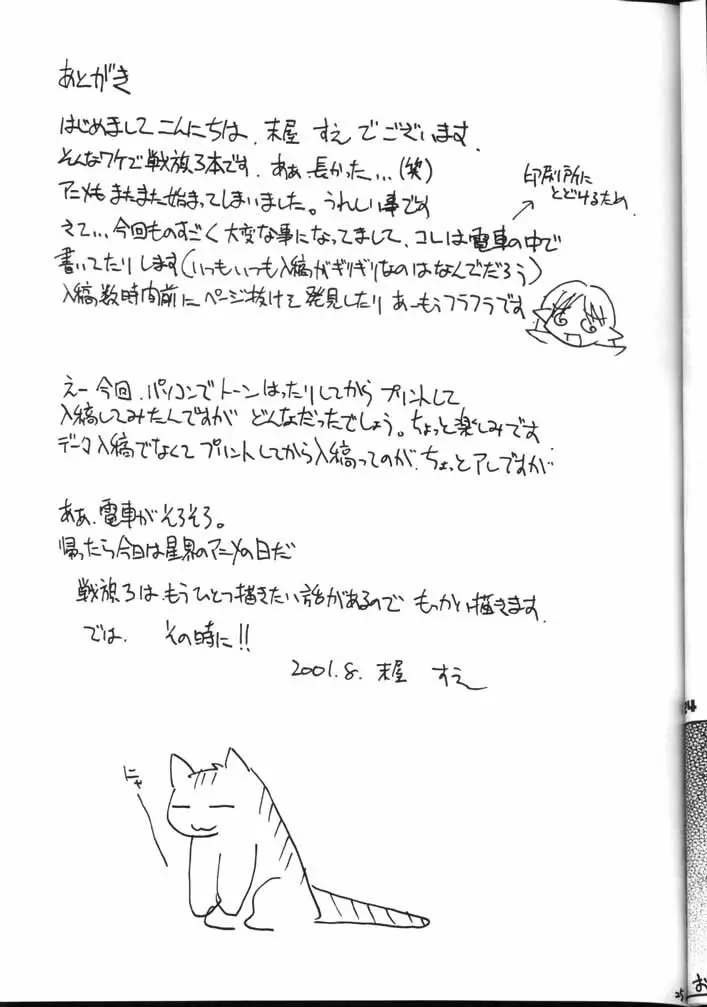 あとがき
はじめまして こんにちは、末屋 すえ でございます。
そんなワケで戦旗3本です。あぁ 長かった…(笑)
アニメも またまた 始まってしまいました。うれしい事です
さて… 今回ものすごく 大変な事になってまして、コレは 電車の中で
書いてたりします(いつもいつも入稿がギリギリなのはなんでだろう)
入稿数時間前に ページ抜けを 発見したり あーもうフラフラです
印刷所に
とどけるため。
えー 今回、パソコンで トーン はったりしてから プリントして
入稿してみたんですが どんなだったでしょう。ちょっと楽しみです
データ入稿でなくて プリントしてから入稿ってのが、ちょっとアレですが
あぁ、電車が そろそろ。
帰ったら今日は星界のアニメの日だ
戦旗3は もうひとつ描きたい話があるので もっかい描きます。
では、 その時に!!
2001.8. 末屋 すえ
にゃ
25